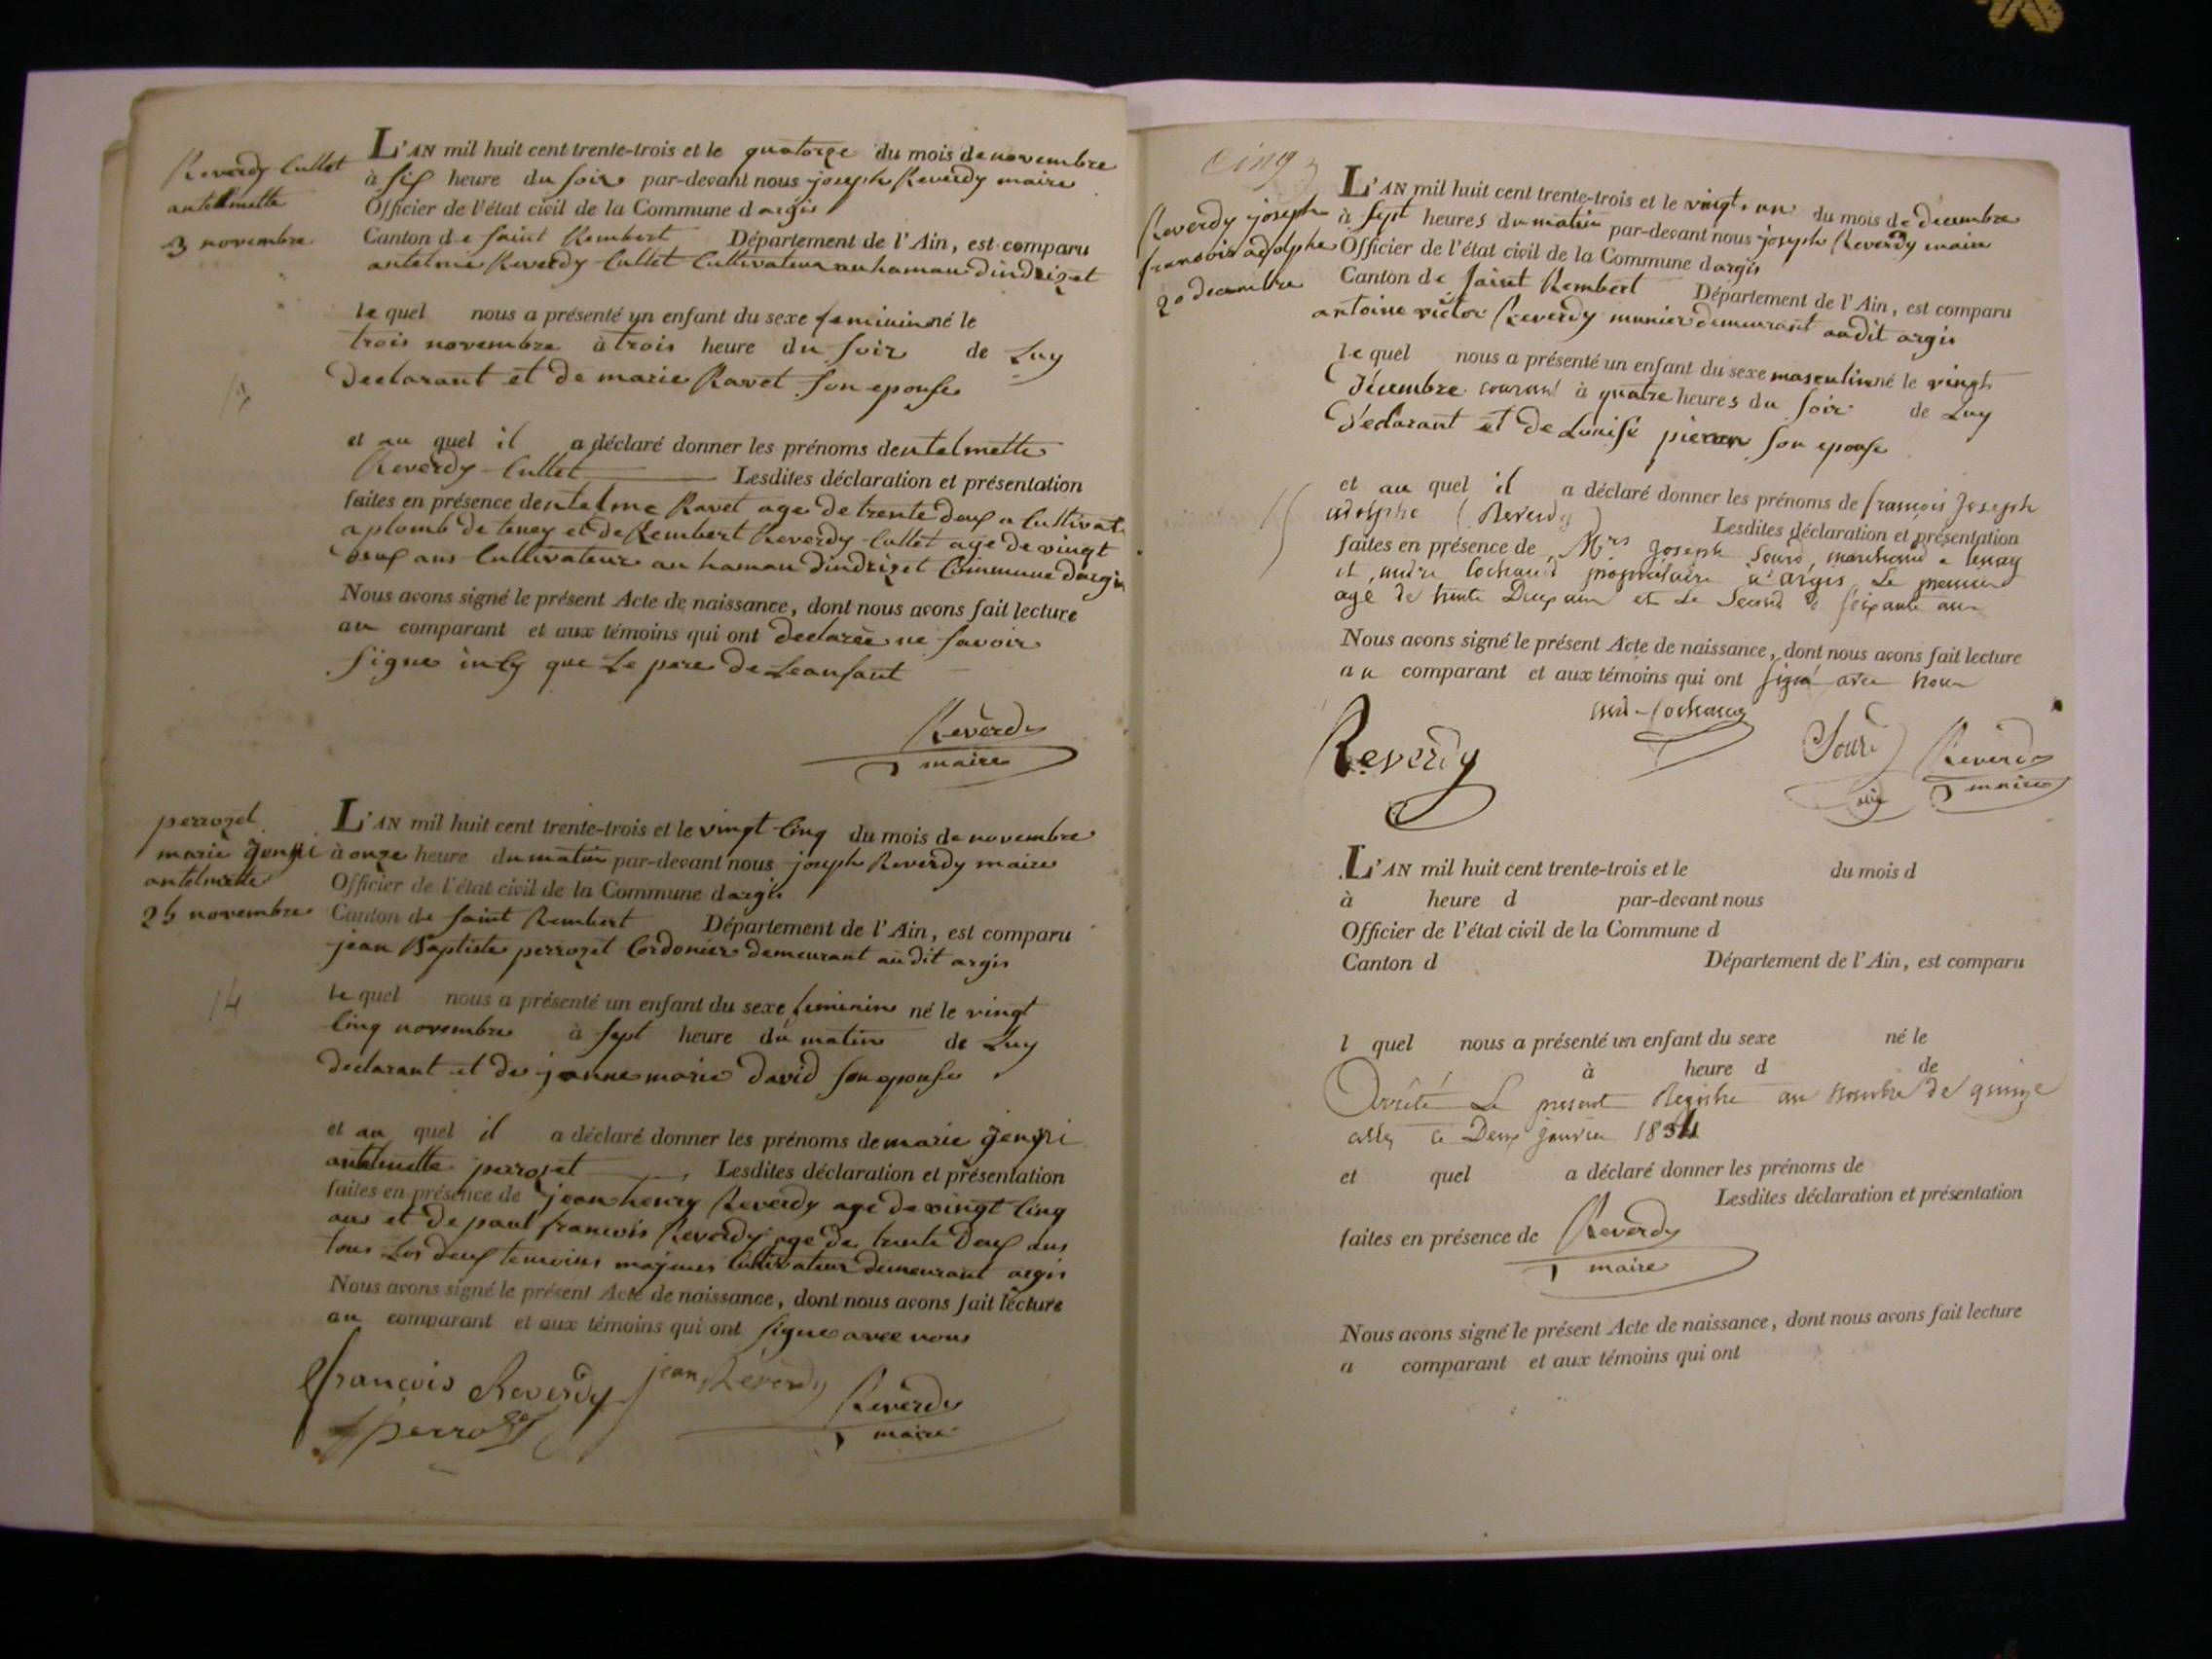 Reverdy Cullet
antelmette
3 novembre
13
L'AN mil huit cent trente-trois et le quatorze du mois de novembre
à six heure du soir par-devant nous joseph Reverdy maire
Officier de l'état civil de la Commune dargis
Canton de saint Rembert Département de l'Ain, est comparu
antelme Reverdy Cullet Cultivateur au hamau dindrizet
le quel nous a présenté un enfant du sexe feminin né le
trois novembre à trois heure du soir de Luy
Declarant et de marie Ravet son epouse
et au quel il a déclaré donner les prénoms dentelmette
Reverdy Cullet Lesdites déclaration et présentation
faites en présence dentelme Ravet age de trente deux a Cultivat
a plomb de teney et de Rembert Reverdy Cullet age de vingt
deux ans Cultivateur au hamau dindrizet Commune dargis
Nous avons signé le présent Acte de naissance, dont nous avons fait lecture
au comparant et aux témoins qui ont declarée ne savoir
signe que Le pere de Leansant
Reverdy
maire
perrozet
marie
antelmette
25 novembre
14
L'AN mil huit cent trente-trois et le vingt Cinq du mois de novembre
à onze heure du matin par-devant nous joseph Reverdy maire
Officier de l'état civil de la Commune dargis
Canton de saint Rembert Département de l'Ain, est comparu
jean Baptiste perrozet Cordonier demeurant audit argis
le quel nous a présenté un enfant du sexe feminin né le vingt
Cinq novembre à sept heure du matin de Luy
declarant et de jeanne marie David son epouse
et au quel il a déclaré donner les prénoms de marie
antelmette perrozet Lesdites déclaration et présentation
faites en présence de jean henry Reverdy age de vingt Cinq
ans et de paul francois Reverdy age de trente Deux ans
tous Les deux temoins majeurs Cultivateur demeurant argis
Nous avons signé le présent Acte de naissance, dont nous avons fait lecture
au comparant et aux témoins qui ont signe avec nous
francois Reverdy jean Reverdy
Reverdy
maire
perrozet
Cinq
Reverdy joseph
francois adolphe
20 decembre
15
L'AN mil huit cent trente-trois et le vingt un du mois de decembre
à sept heures du matin par-devant nous joseph Reverdy maire
Officier de l'état civil de la Commune dargis
Canton de saint Rembert Département de l'Ain, est comparu
antoine victor Reverdy munier demeurant audit argis
le quel nous a présenté un enfant du sexe masculin né le vingt
Décembre courant à quatre heures du soir de Luy
Declarant et de Louise son epouse
et au quel il a déclaré donner les prénoms de françois Joseph
adolphe (Reverdy) Lesdites déclaration et présentation
faites en présence de Mrs Joseph Sourd, marchand a tenay
et andre Cochaud propriétaire a argis Le premier
agé de trente Deux ans et Le Second de soixante ans
Nous avons signé le présent Acte de naissance, dont nous avons fait lecture
au comparant et aux témoins qui ont signé avec nous
Reverdy
Reverdy
maire
L'AN mil huit cent trente-trois et le du mois d
à heure d par-devant nous
Officier de l'état civil de la Commune d
Canton d Département de l'Ain, est comparu
l quel nous a présenté un enfant du sexe né le
à heure d de
Arrêté Le present Registre au nombre de quinze
actes ce Deux janvier 1834
et quel a déclaré donner les prénoms de
Lesdites déclaration et présentation
faites en présence de Reverdy
maire
Nous avons signé le présent Acte de naissance, dont nous avons fait lecture
a comparant et aux témoins qui ont